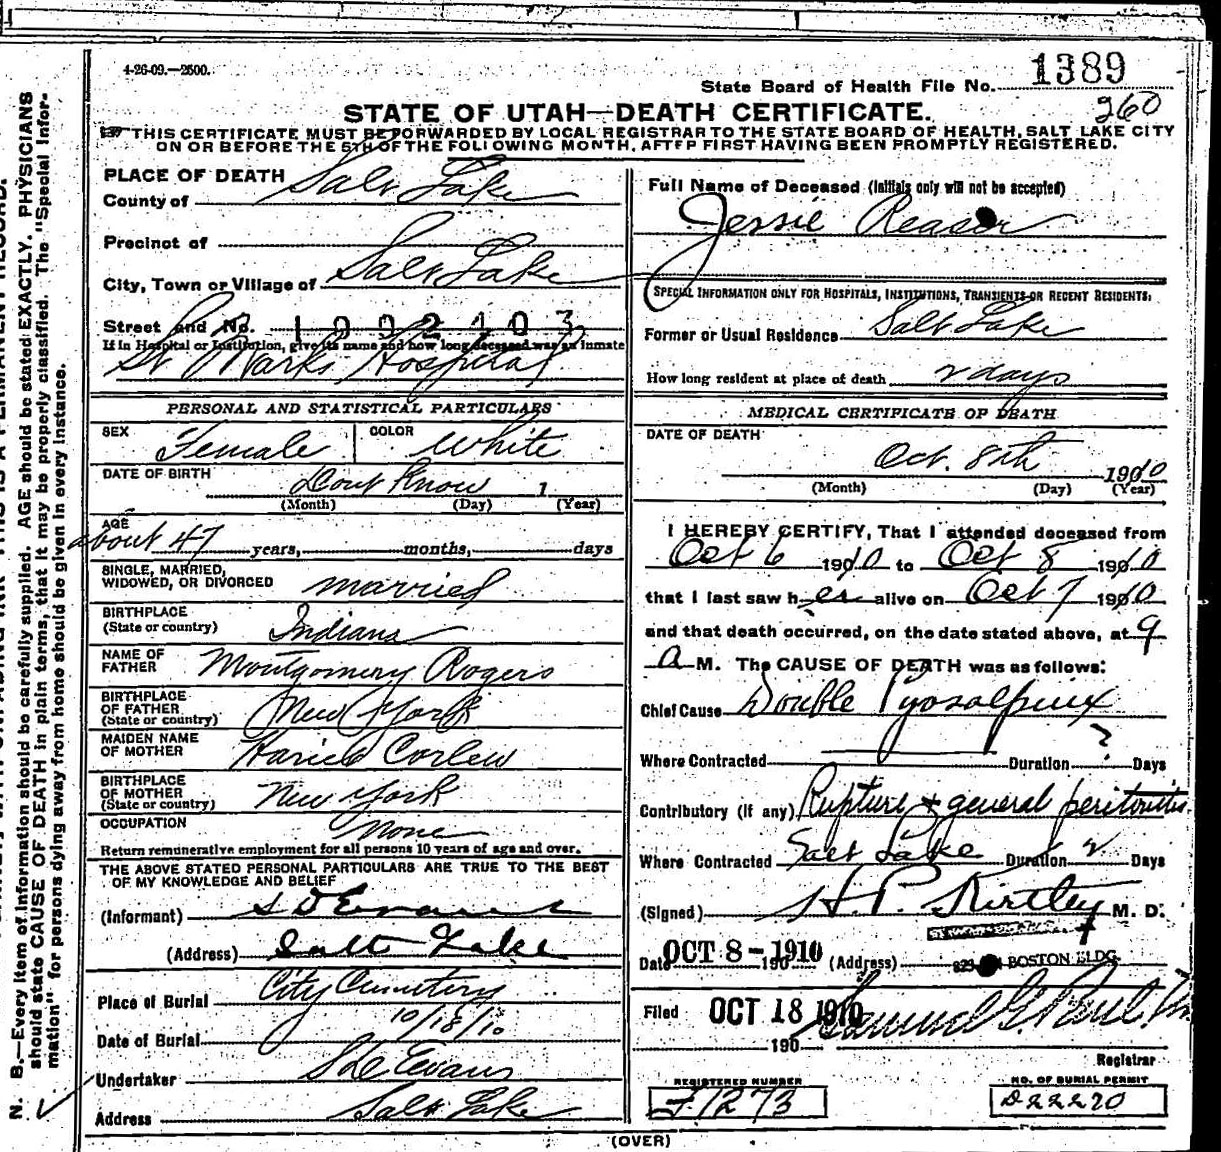 4-26-09.—2500.
State Board of Health File No. 1389
STATE OF UTAH—DEATH CERTIFICATE.
260
THIS CERTIFICATE MUST BE FORWARDED BY LOCAL REGISTRAR TO THE STATE BOARD OF HEALTH, SALT LAKE CITY
ON OR BEFORE THE 5TH OF THE FOLLOWING MONTH, AFTER FIRST HAVING BEEN PROMPTLY REGISTERED.
PLACE OF DEATH
County of Salt Lake
Precinct of
City, Town or Village of Salt Lake
Street and No. 1002403
If in Hospital or Institution, give its name and how long deceased was an inmate
St Marks Hospital
PERSONAL AND STATISTICAL PARTICULARS
SEX Female COLOR White
DATE OF BIRTH Dont Know 1
(Month) (Day) (Year)
AGE
about 47 years, months, days
SINGLE, MARRIED,
WIDOWED, OR DIVORCED married
BIRTHPLACE
(State or country) Indiana
NAME OF
FATHER Montgomery Rogers
BIRTHPLACE
OF FATHER
(State or country) New York
MAIDEN NAME
OF MOTHER Corlew
BIRTHPLACE
OF MOTHER
(State or country) New York
OCCUPATION None
Return remunerative employment for all persons 10 years of age and over.
THE ABOVE STATED PERSONAL PARTICULARS ARE TRUE TO THE BEST
OF MY KNOWLEDGE AND BELIEF
(Informant) S D Evans
(Address) Salt Lake
Place of Burial City Cemetery
Date of Burial 10/18/10
Undertaker S D Evans
Address Salt Lake
Full Name of Deceased (Initials only will not be accepted)
Jessie Reasor
SPECIAL INFORMATION ONLY FOR HOSPITALS, INSTITUTIONS, TRANSIENTS OR RECENT RESIDENTS.
Former or Usual Residence Salt Lake
How long resident at place of death 2 days
MEDICAL CERTIFICATE OF DEATH
DATE OF DEATH
Oct. 8th 1910
(Month) (Day) (Year)
I HEREBY CERTIFY, That I attended deceased from
Oct 6 1910 to Oct 8 1910
that I last saw her alive on Oct 7 1910
and that death occurred, on the date stated above, at 9
a M. The CAUSE OF DEATH was as follows:
Chief Cause Double Pyosalpinx
Where Contracted Duration ? Days
Contributory (if any) Rupture + general peritonitis
Where Contracted Salt Lake Duration 2 Days
(Signed) H. P. Kirtley M. D.
Date OCT 8-1910 190 (Address) BOSTON BLDG.
Filed OCT 18 1910
190
Registrar
REGISTERED NUMBER
F1273
NO. OF BURIAL PERMIT
D22220
(OVER)
N. B.—Every item of information should be carefully supplied. AGE should be stated EXACTLY. PHYSICIANS
should state CAUSE OF DEATH in plain terms, that it may be properly classified. The "Special Infor-
mation" for persons dying away from home should be given in every instance.